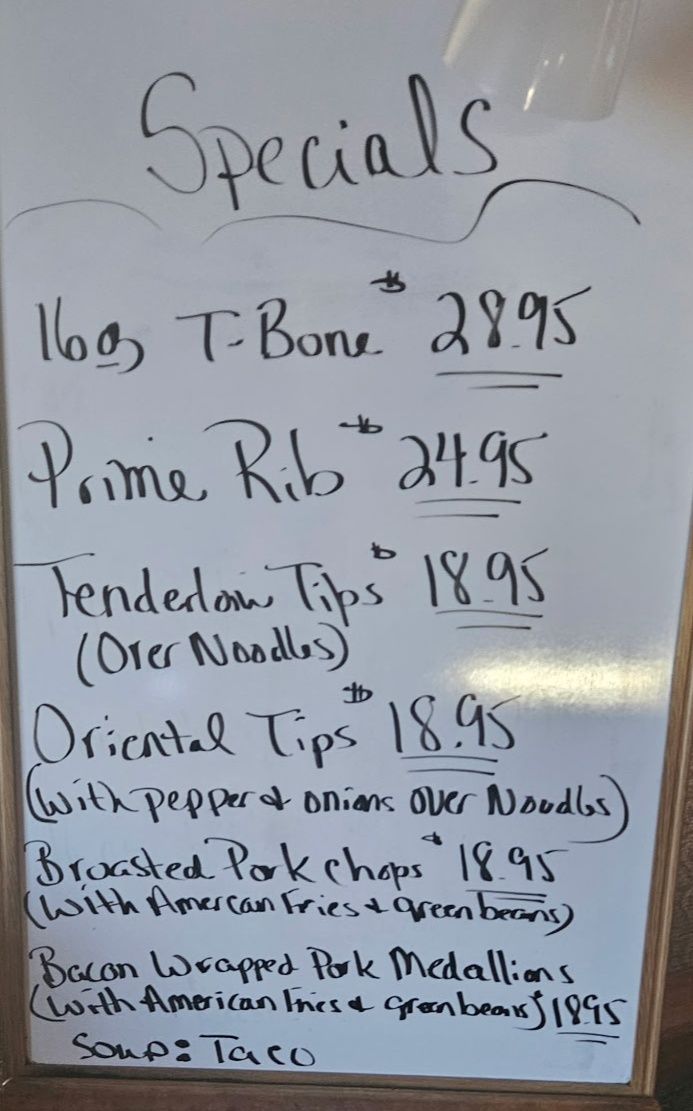 Specials
16oz T-Bone $28.95
Prime Rib $24.95
Tenderloin Tips $18.95
(Over Noodles)
Oriental Tips $18.95
(With pepper & onions over Noodles)
Broasted Pork chops $18.95
(With Amercan Fries & green beans)
Bacon Wrapped Pork Medallions
(With American Fries & green beans) $18.95
Soup: Taco